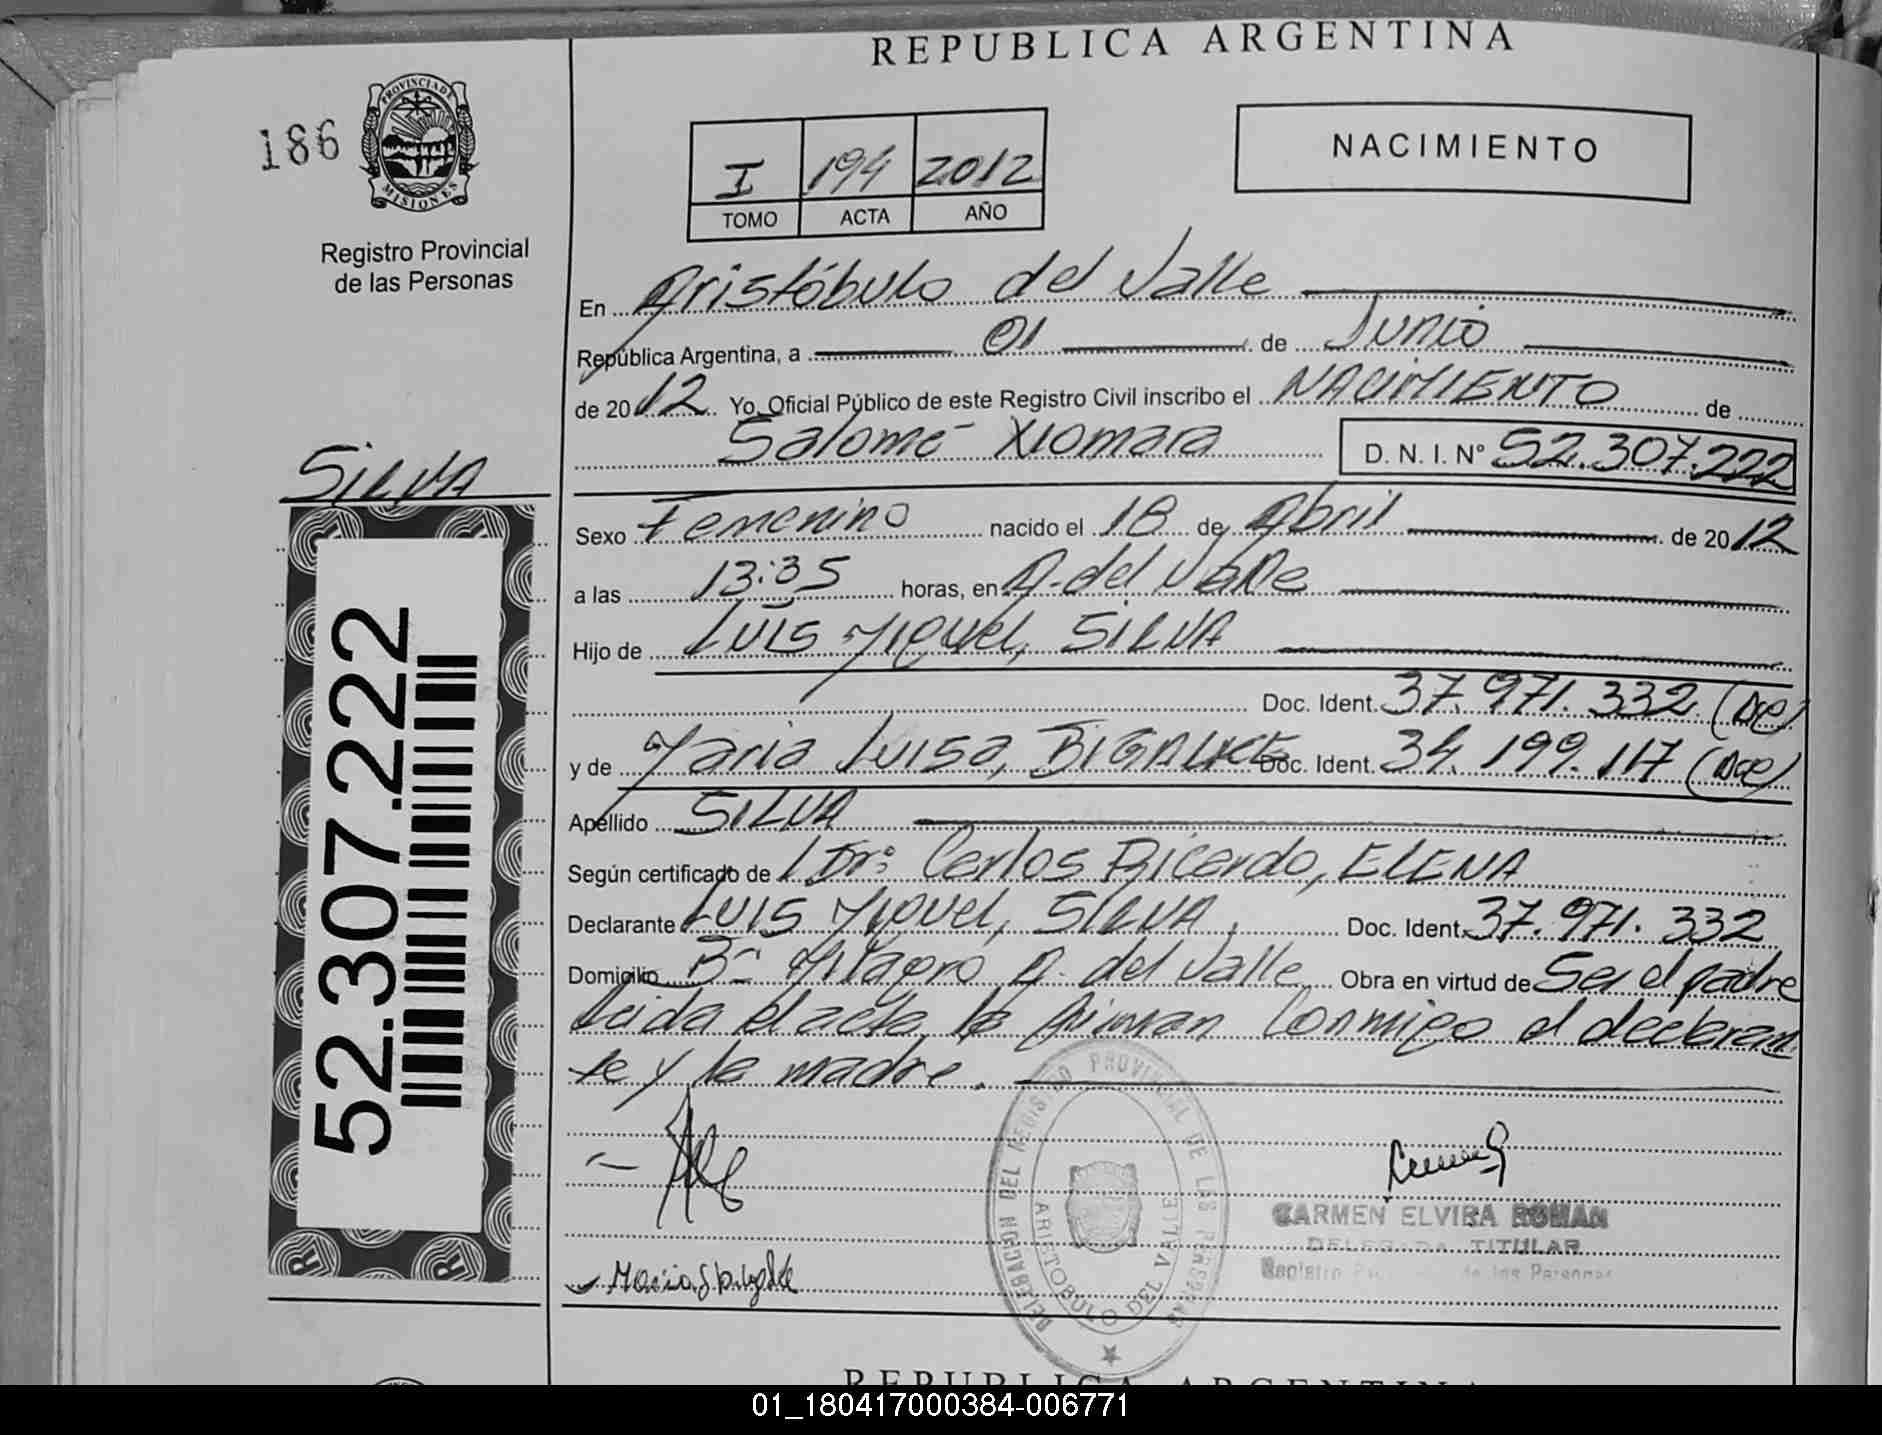 REPUBLICA ARGENTINA
186
PROVINCIA DE
MISIONES
Registro Provincial
de las Personas
I 194 2012
TOMO ACTA AÑO
NACIMIENTO
En Aristóbulo del Valle
República Argentina, a 01 de Junio
de 2012 Yo, Oficial Público de este Registro Civil inscribo el NACIMIENTO de
Salomé Xiomara D. N. I. Nº 52.307.222
SILVA
Sexo Femenino nacido el 18 de Abril de 2012
a las 13:35 horas, en A. del Valle
Hijo de Luis Miguel, SILVA
Doc. Ident. 37.971.332 (Arg)
y de Maria Luisa, Doc. Ident. 34.199.117 (Arg)
Apellido SILVA
Según certificado de Dr: Carlos Ricardo, ELENA
Declarante Luis Miguel, SILVA Doc. Ident. 37.971.332
Domicilio Bº Milagro A. del Valle Obra en virtud de Ser el padre
Leida el acta la firman conmigo el declaran
te y la madre.
52.307.222
DELEGACION DEL REGISTRO PROVINCIAL DE LAS PERSONAS
ARISTOBULO DEL VALLE
CARMEN ELVIRA ROMAN
DELEGADA TITULAR
Registro de las Personas
REPUBLICA ARGENTINA
01_180417000384-006771